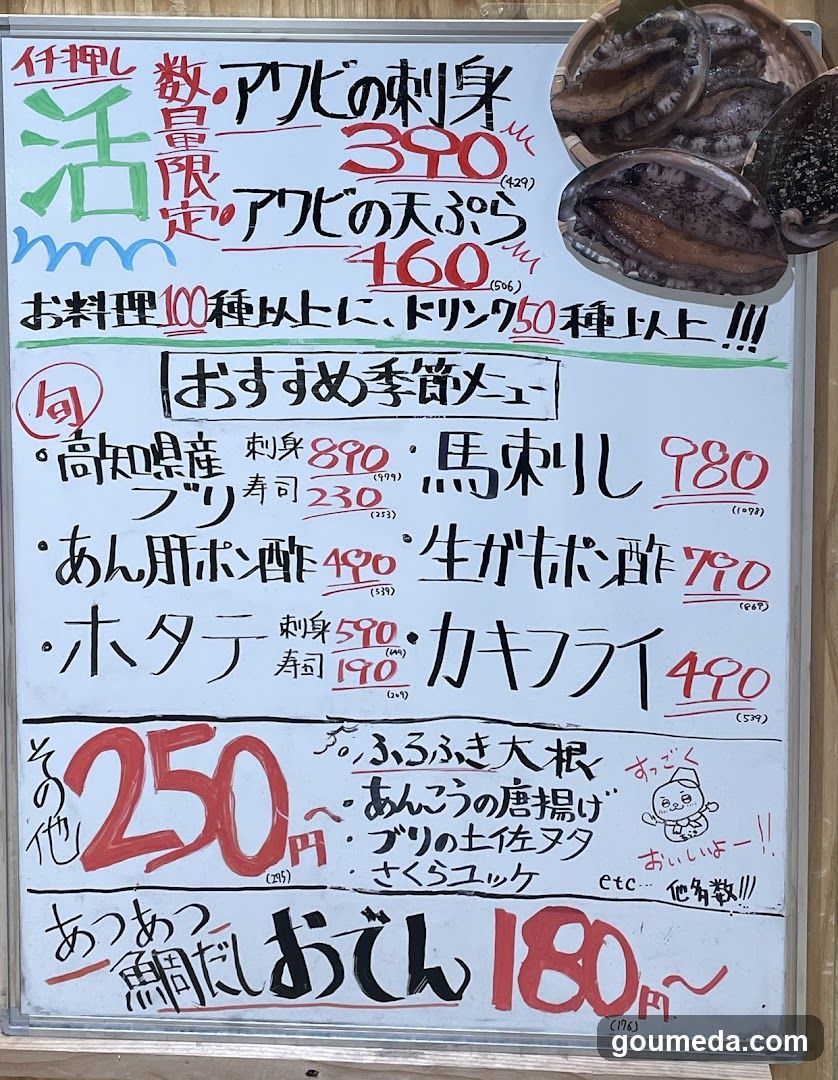 イチ押し
活
数量限定
・アワビの刺身
390
(429)
・アワビの天ぷら
460
(506)
お料理100種以上に、ドリンク50種以上!!!
旬
おすすめ季節メニュー
・高知県産ブリ 刺身 890
(979)
寿司 230
(253)
・馬刺し 980
(1078)
・あん肝ポン酢 490
(539)
・生がきポン酢 790
(869)
・ホタテ 刺身 590
(649)
寿司 190
(209)
・カキフライ 490
(539)
その他 250円~
(275)
・ふろふき大根
・あんこうの唐揚げ
・ブリの土佐ヌタ
・さくらユッケ
etc… 他多数!!!
すっごく
おいしいよー!!
あつあつ
鯛だしおでん 180円~
(176)
goumeda.com